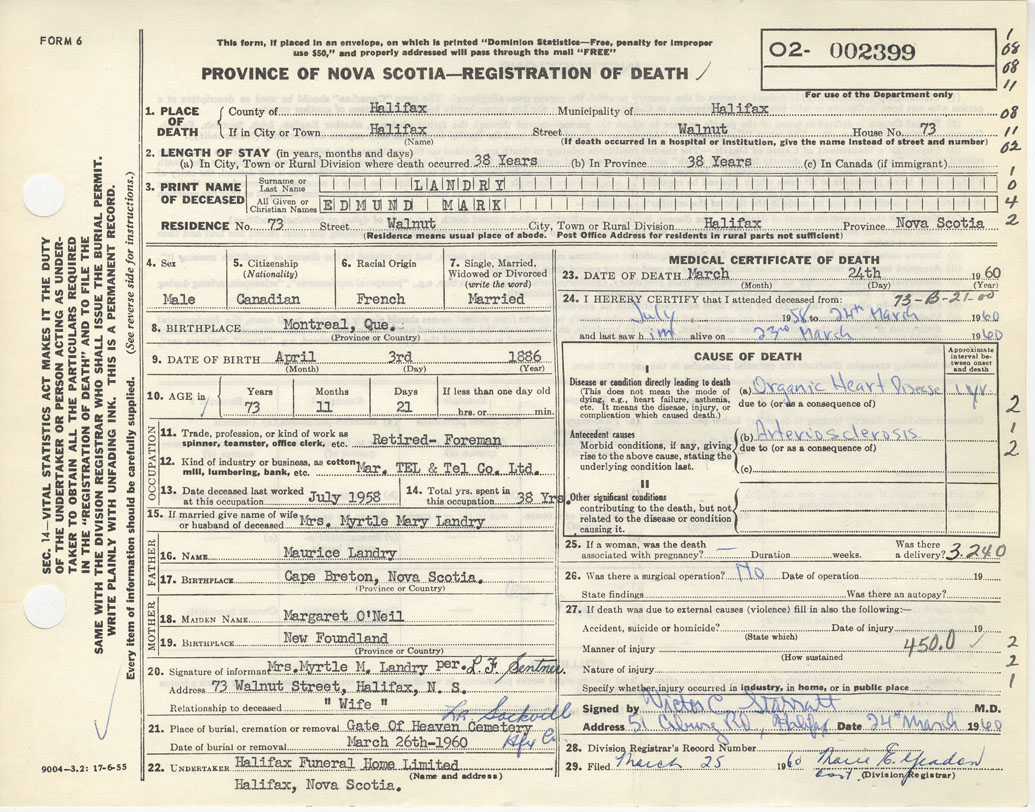 FORM 6
This form, if placed in an envelope, on which is printed "Dominion Statistics—Free, penalty for improper
use $50," and properly addressed will pass through the mail "FREE"
PROVINCE OF NOVA SCOTIA—REGISTRATION OF DEATH
O2- 002399
For use of the Department only
1
08
08
11
08
11
02
1
0
4
2
1. PLACE OF DEATH
County of Halifax Municipality of Halifax
If in City or Town Halifax Street Walnut House No. 73
(Name) (If death occurred in a hospital or institution, give the name instead of street and number)
2. LENGTH OF STAY (in years, months and days)
(a) In City, Town or Rural Division where death occurred 38 Years (b) In Province 38 Years (c) In Canada (if immigrant)
3. PRINT NAME OF DECEASED
Surname or Last Name LANDRY
All Given or Christian Names EDMUND MARK
RESIDENCE No. 73 Street Walnut City, Town or Rural Division Halifax Province Nova Scotia
(Residence means usual place of abode. Post Office Address for residents in rural parts not sufficient)
SEC. 14—VITAL STATISTICS ACT MAKES IT THE DUTY
OF THE UNDERTAKER OR PERSON ACTING AS UNDER-
TAKER TO OBTAIN ALL THE PARTICULARS REQUIRED
IN THE "REGISTRATION OF DEATH" AND TO FILE THE
SAME WITH THE DIVISION REGISTRAR WHO SHALL ISSUE THE BURIAL PERMIT.
WRITE PLAINLY WITH UNFADING INK. THIS IS A PERMANENT RECORD.
Every item of information should be carefully supplied. (See reverse side for instructions.)
4. Sex
Male
5. Citizenship
(Nationality)
Canadian
6. Racial Origin
French
7. Single, Married,
Widowed or Divorced
(write the word)
Married
8. BIRTHPLACE Montreal, Que.
(Province or Country)
9. DATE OF BIRTH April 3rd 1886
(Month) (Day) (Year)
10. AGE in
Years Months Days If less than one day old
73 11 21 hrs. or min.
OCCUPATION
11. Trade, profession, or kind of work as
spinner, teamster, office clerk, etc. Retired- Foreman
12. Kind of industry or business, as cotton
mill, lumbering, bank, etc. Mar. TEL & Tel Co. Ltd.
13. Date deceased last worked
at this occupation July 1958
14. Total yrs. spent in
this occupation 38 Yrs.
15. If married give name of wife
or husband of deceased Mrs. Myrtle Mary Landry
FATHER
16. NAME Maurice Landry
17. BIRTHPLACE Cape Breton, Nova Scotia.
(Province or Country)
MOTHER
18. MAIDEN NAME Margaret O'Neil
19. BIRTHPLACE New Foundland
(Province or Country)
20. Signature of informant Mrs. Myrtle M. Landry per. L. F. Sentner.
Address 73 Walnut Street, Halifax, N. S.
Relationship to deceased " Wife "
Sackville
21. Place of burial, cremation or removal Gate Of Heaven Cemetery
Hfx Co
Date of burial or removal March 26th-1960
22. UNDERTAKER Halifax Funeral Home Limited
(Name and address)
Halifax, Nova Scotia.
9004-3.2: 17-6-55
MEDICAL CERTIFICATE OF DEATH
23. DATE OF DEATH March 24th 1960
(Month) (Day) (Year)
24. I HEREBY CERTIFY that I attended deceased from: 73-B-21-00
July 1958 to 24th March 1960
and last saw him alive on 23rd March 1960
CAUSE OF DEATH
Approximate
interval be-
tween onset
and death
I
Disease or condition directly leading to death
(This does not mean the mode of
dying, e.g., heart failure, asthenia,
etc. It means the disease, injury, or
complication which caused death.)
(a) Organic Heart Disease 1 yr.
due to (or as a consequence of)
Antecedent causes
Morbid conditions, if any, giving
rise to the above cause, stating the
underlying condition last.
(b) Arteriosclerosis
due to (or as a consequence of)
(c)
II
Other significant conditions
contributing to the death, but not
related to the disease or condition
causing it.
2
1
2
25. If a woman, was the death
associated with pregnancy? — Duration weeks. Was there
a delivery? 3.240
26. Was there a surgical operation? No Date of operation 19
State findings Was there an autopsy?
27. If death was due to external causes (violence) fill in also the following:—
Accident, suicide or homicide? Date of injury 19
(State which)
Manner of injury 450.0
(How sustained
Nature of injury
2
2
1
Specify whether injury occurred in industry, in home, or in public place
Signed by Victor C. Starratt M.D.
Address Halifax Date 24th March 1960
28. Division Registrar's Record Number
29. Filed March 25 1960 Marie E.
(Division Registrar)